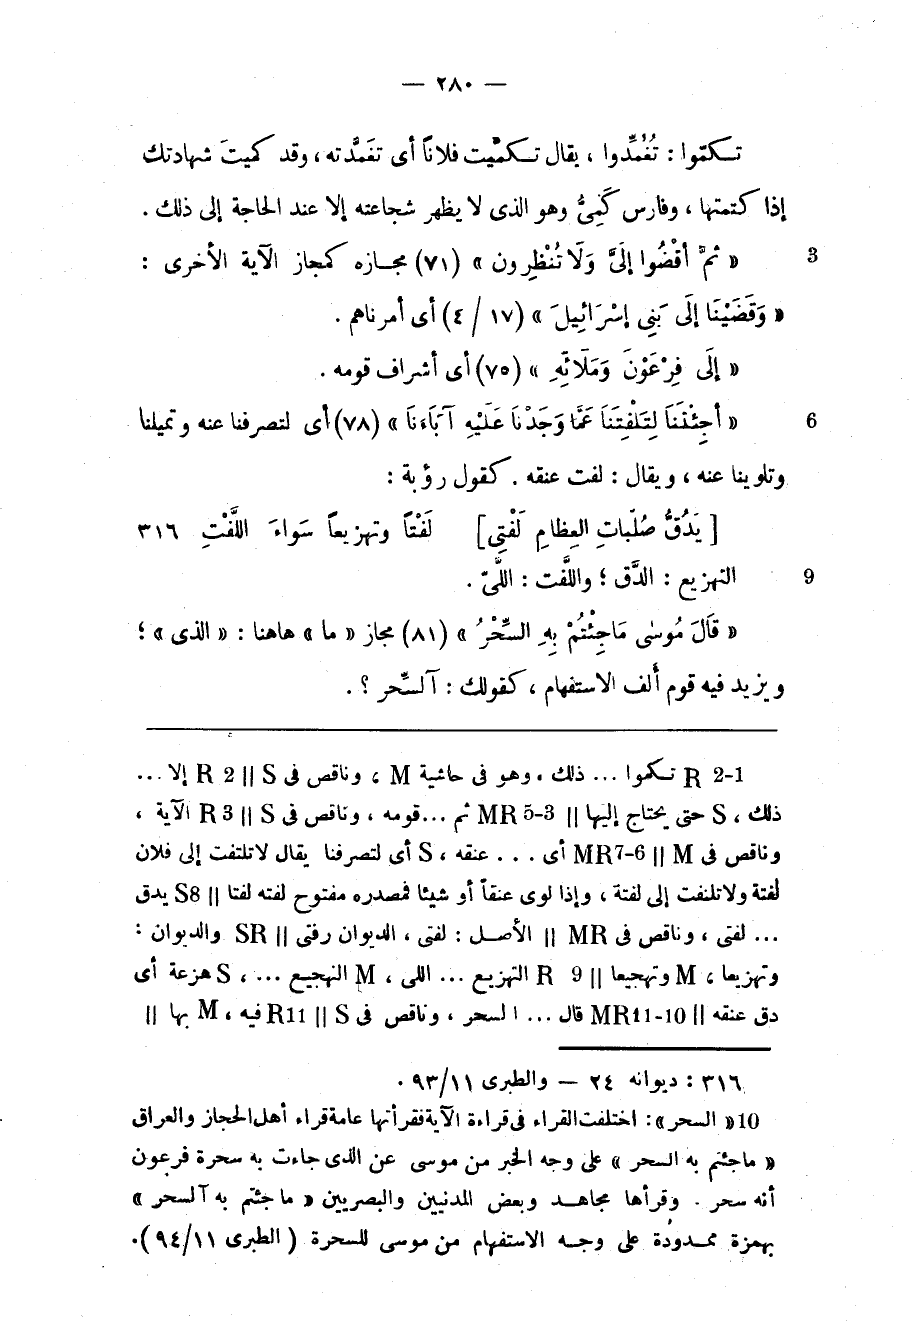 — ٢٨٠ —
تكمّوا : تُغُمِّدوا ، يقال تكمّيت فلاناً أى تغمَّدته ، وقد كميتَ شهادتك
إذا كتمتها ، وفارس كَمِىُّ وهو الذى لا يظهر شجاعته إلا عند الحاجة إلى ذلك .
« ثمَّ أقْضُوا إلَىَّ وَلَا تُنْظِرون » (٧١) مجازه كمجاز الآية الأخرى : 3
« وَقَضَيْنَا إلَى بَنِى إسْرَائِيلَ » (١٧ / ٤) أى أمرناهم .
« إلَى فِرْعَوْنَ وَمَلَائِهِ » (٧٥) أى أشراف قومه .
« أجِئْتَنَا لِتَلْفِتَنَا عَمَّا وَجَدْنَا عَلَيْهِ آبَاءَنَا » (٧٨) أى لتصرفنا عنه وتميلنا 6
وتلوينا عنه ، ويقال : لفت عنقه . كقول رؤبة :
[ يَدُقُّ صُلّباتِ العِظامِ لَفْتِى ] لَفْتاً وتهزيعاً سَواءَ اللَّفْتِ ٣١٦
التهزيع : الدَّق ؛ واللَّفت : اللَّىّ . 9
« قَالَ مُوسٰى مَاجِئْتُمْ بِهِ السِّحْرُ » (٨١) مجاز « ما » هاهنا : « الذى » ؛
ويزيد فيه قوم ألف الاستفهام ، كقولك : آلسِّحر ؟ .
R 2-1 تكموا ... ذلك ، وهو فى حاشية M ، وناقص فى R 2 || S إلا ...
ذلك ، S حتى يحتاج إليها || MR 5-3 ثم ... قومه ، وناقص فى R 3 || S الآية ،
وناقص فى MR7-6 || M أى ... عنقه ، S أى لتصرفنا يقال لاتلتفت إلى فلان
لفتة ولاتلتفت إلى لفتة ، وإذا لوى عنقاً أو شيئا فمصدره مفتوح لفته لفتا || S8 يدق
... لفتى ، وناقص فى MR || الأصل : لفتى ، الديوان رفتى || SR والديوان :
وتهزيعا ، M وتهجيعا || R 9 التهزيع ... اللى ، M التهجيع ... ، S هزعة أى
دق عنقه || MR11-10 قال ... السحر ، وناقص فى R11 || S فيه ، M بها ||
٣١٦ : ديوانه ٢٤ — والطبرى ٩٣/١١ .
10 « السحر » : اختلفت القراء فى قراءة الآية فقرأتها عامة قراء أهل الحجاز والعراق
« ماجئتم به السحر » على وجه الخبر من موسى عن الذى جاءت به سحرة فرعون
أنه سحر . وقرأها مجاهد وبعض المدنيين والبصريين « ما جئتم به آلسحر »
بهمزة ممدودة على وجه الاستفهام من موسى للسحرة ( الطبرى ٩٤/١١ ) .